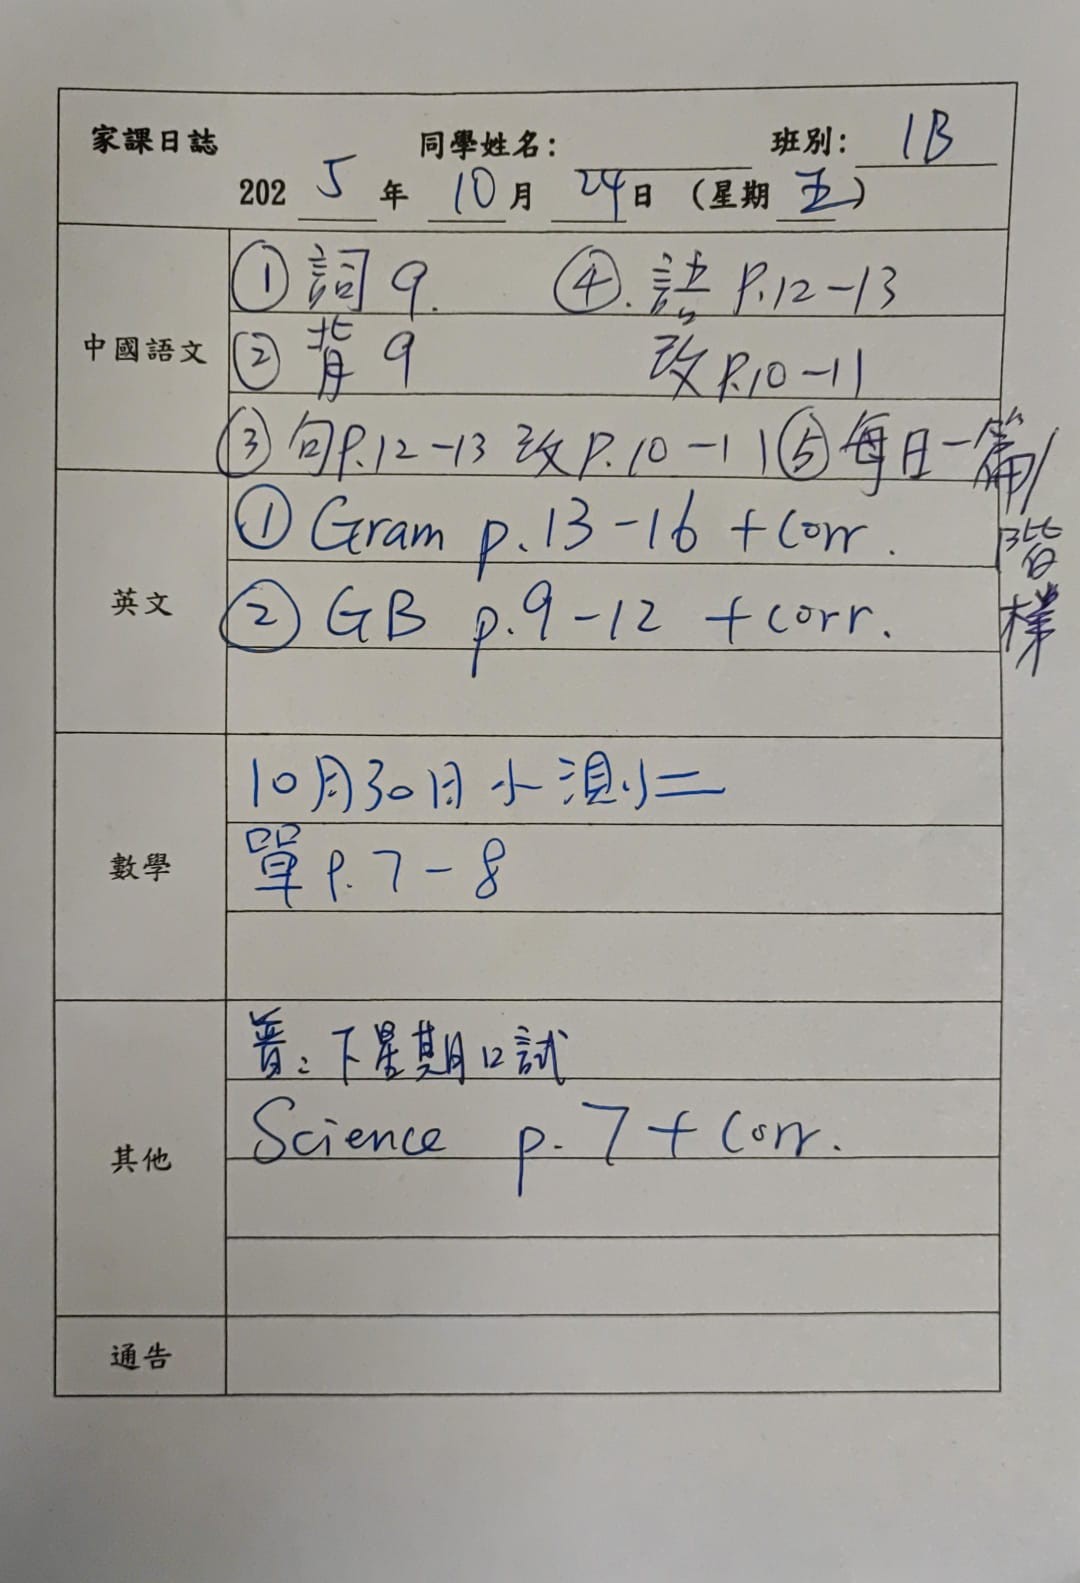 家課日誌 同學姓名： 班別： 1B
2025年10月24日 (星期五)
中國語文
① 詞 9. ④. 語 P.12-13
② 背 9 改 P.10-11
③ 句P.12-13 改P.10-11 ⑤ 每日一篇/
階
英文
① Gram p.13-16 + corr.
② GB p.9-12 + corr.
數學
10月30日小測二
單 P.7-8
其他
普：下星期口試
Science p.7 + Corr.
通告